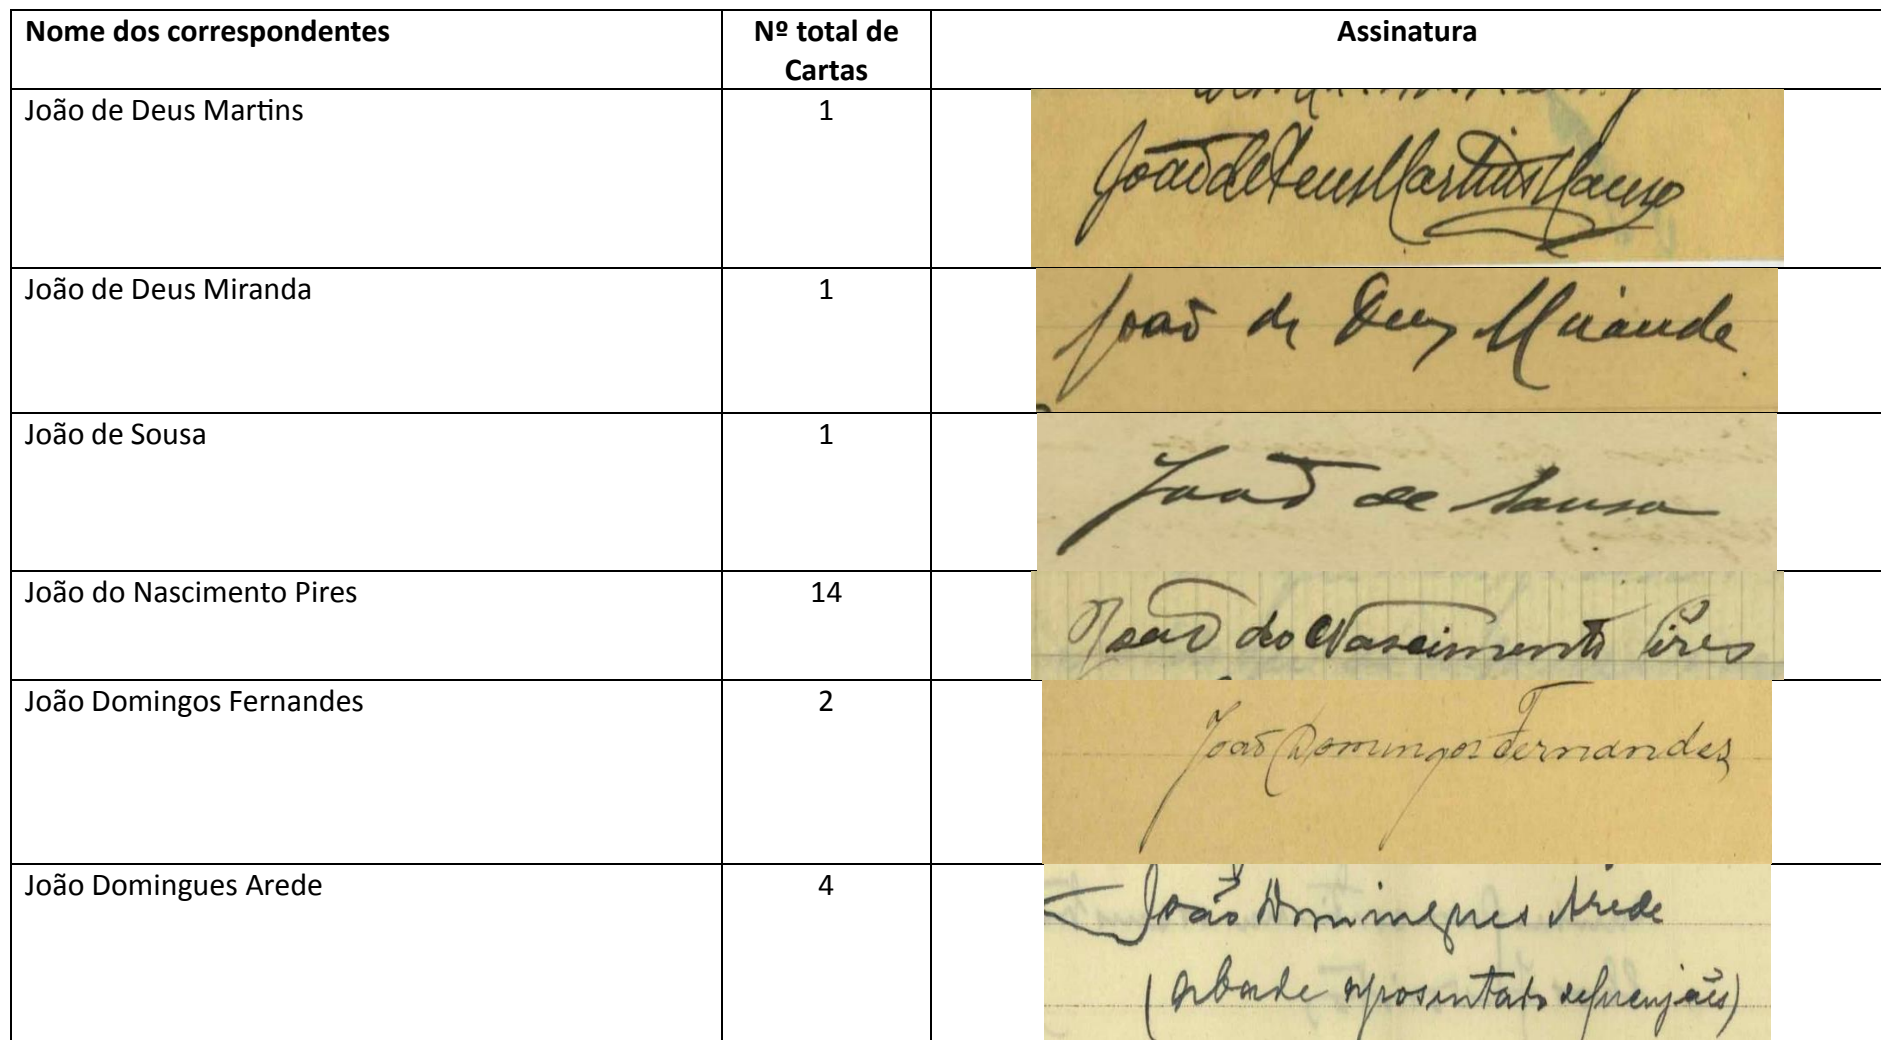 Nome dos correspondentes
Nº total de
Cartas
Assinatura
João de Deus Martins
1
João de Deus Martins
João de Deus Miranda
1
João de Deus Miranda
João de Sousa
1
João de Sousa
João do Nascimento Pires
14
João do Nascimento Pires
João Domingos Fernandes
2
João Domingos Fernandes
João Domingues Arede
4
João Domingues Arede
(abade aposentado